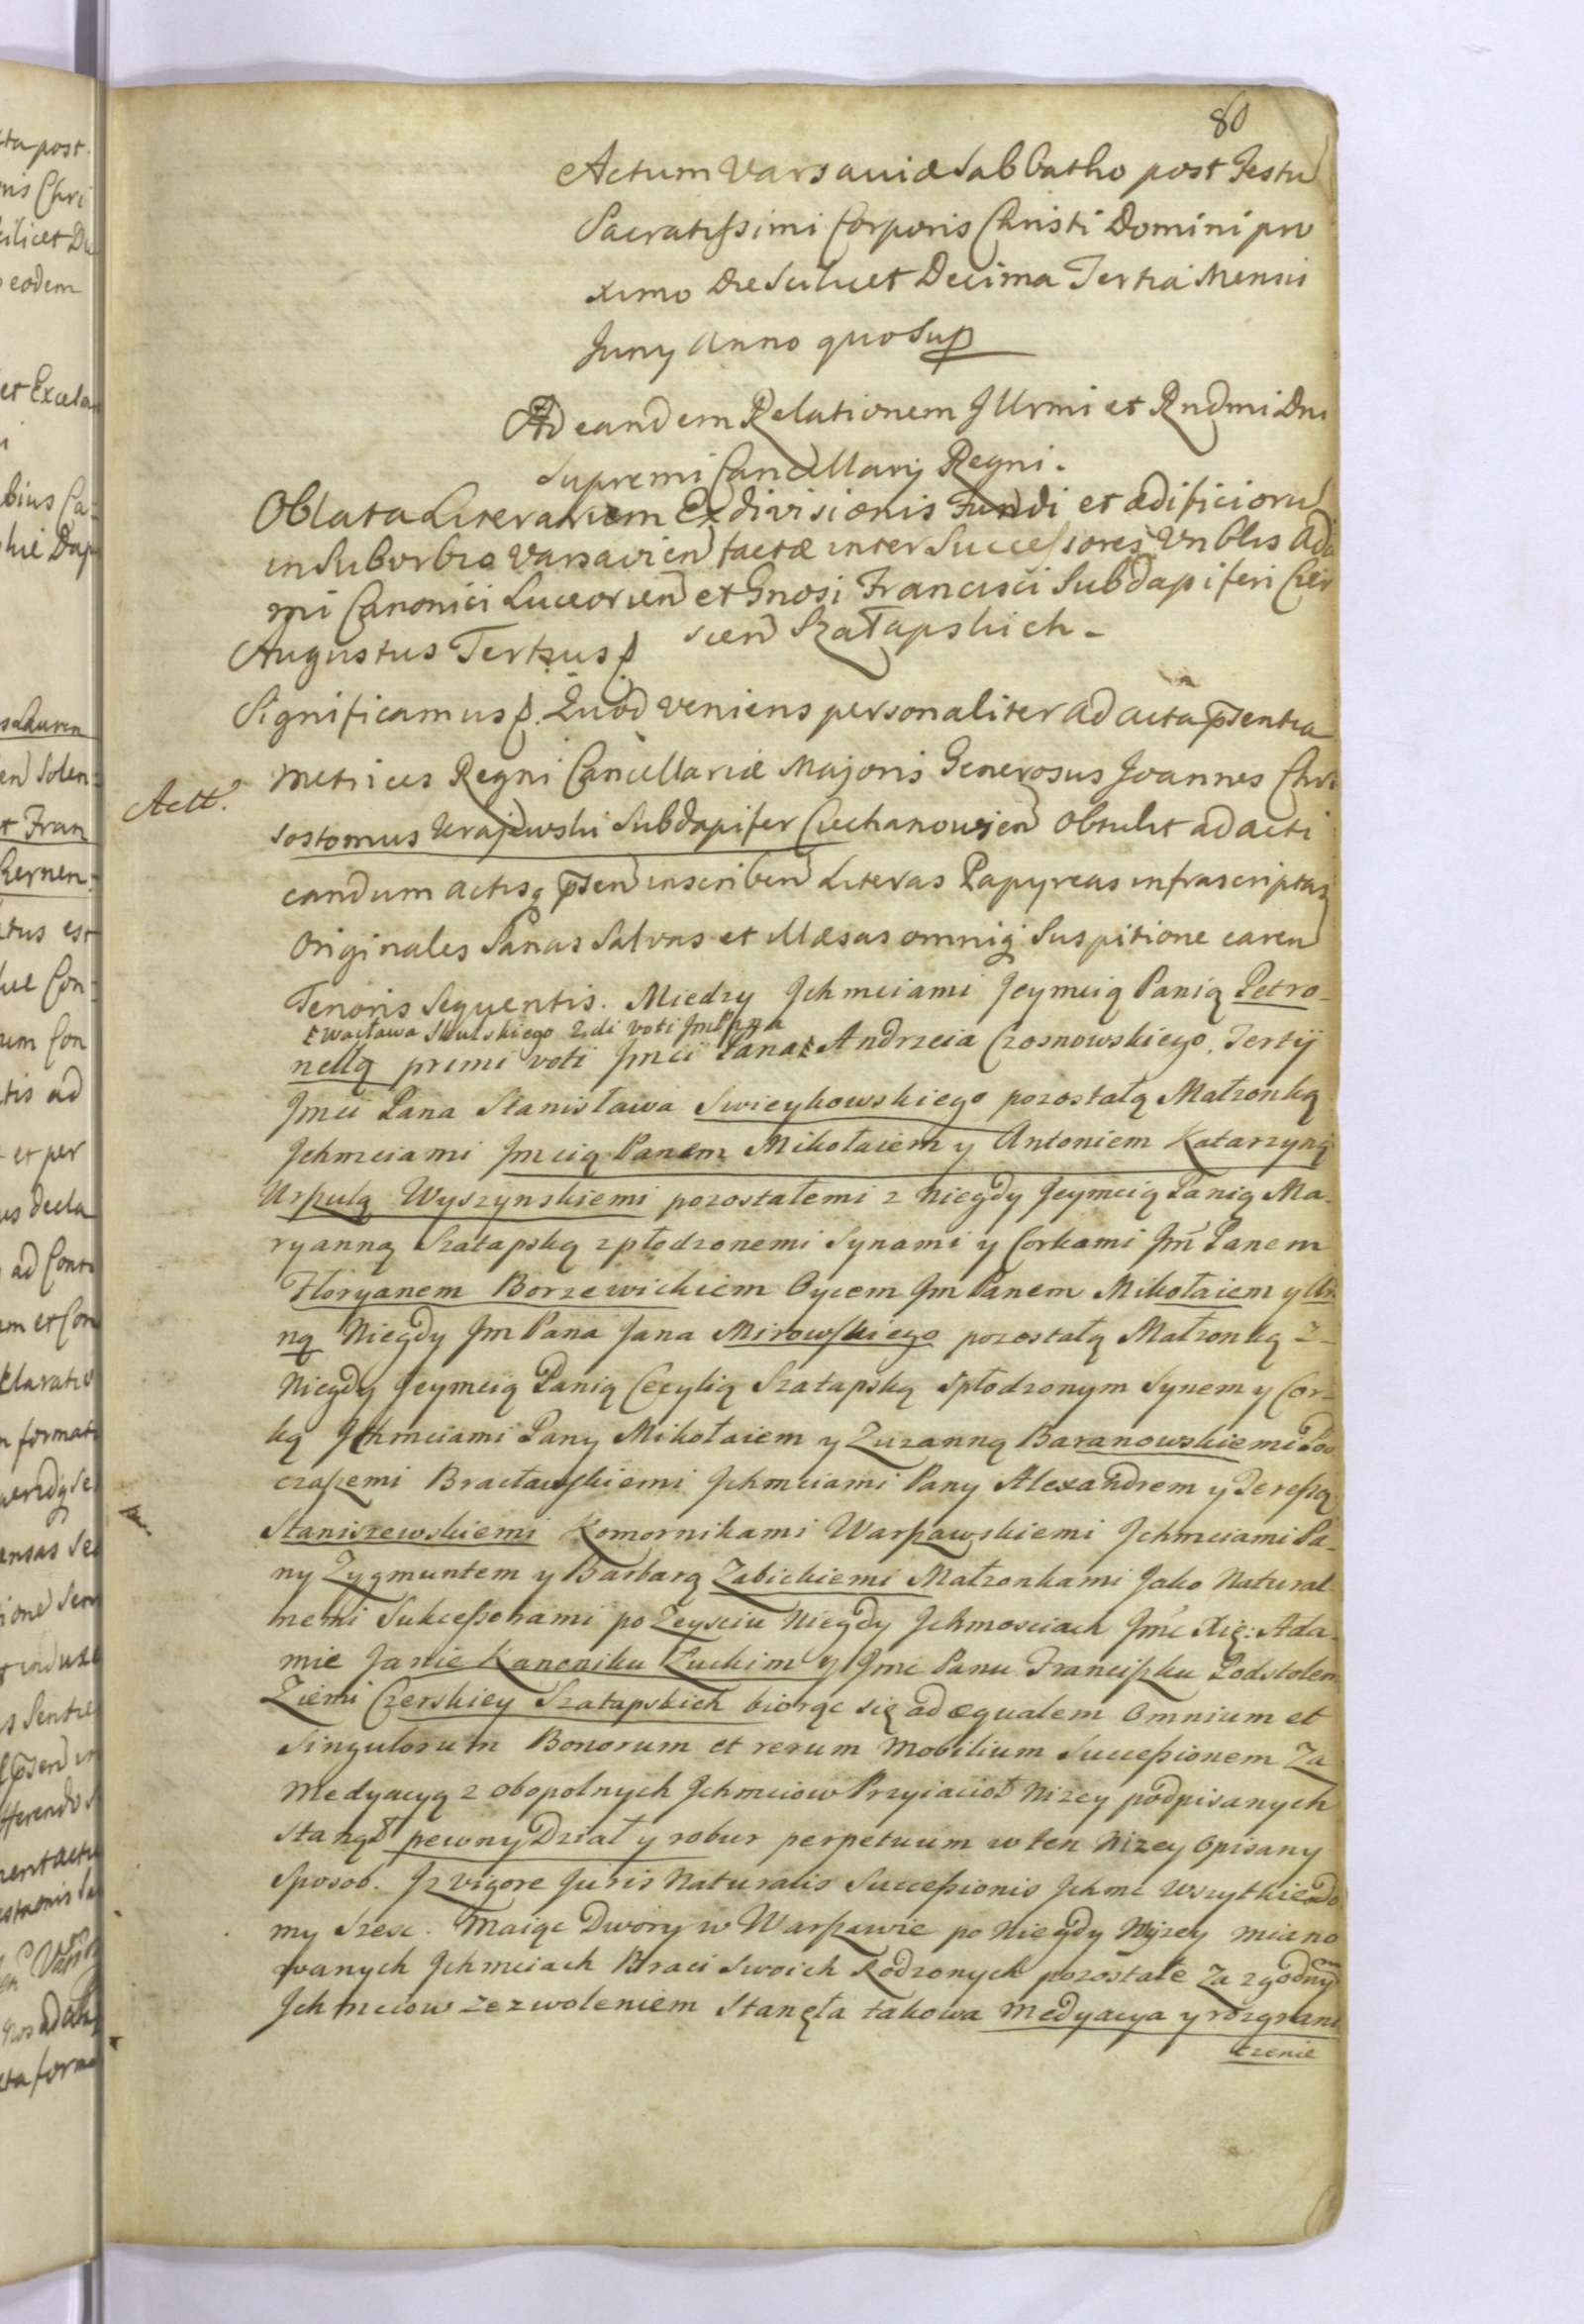 80
Actum Varsaviæ Sabbatho post Festu
Sacratissimi Corporis Christi Domini pro
ximo Die Scilicet Decima Tertia Mensis
Juny Anno quo Sup
Ad eandem Relationem Illrmi et Rndmi Dni
Supremi Cancellarij Regni.
Oblata Literarum Exdivisionis Fundi et ædificioru
in Suburbio Varsavien factæ inter Successores Vnblis Ada
mi Canonici Luceorien et Gnosi Francisci Subdapiferi Czer
scen Szałapskich.
Augustus Tertius
Significamus Quod veniens personaliter ad acta psentia
Metrices Regni Cancellariæ Majoris Generosus Joannes Chri
Actt.
sostomus Krajewski Subdapifer Ciechanovien obtulit ad acti
candum actisq psen inscriben Literas Papyreas infrascriptas
Originales Sanas Salvas et Illæsas omniq Suspitione caren
Tenoris Sequentis. Miedzy Ichmciami Jeymcią Panią Petro-
Wacława Skulskiego 2di voti Jm Pana
nellą primi voti Jmci Pana Andrzeia Czosnowskiego, Tertij
Jmci Pana Stanisława Swieykowskiego pozostałą Małzonką
Jchmciami Jmcią Panem Mikołaiem y Antoniem Katarzyną
Urszulą Wyszynskiemi pozostałemi z niegdy Jeymcią Panią Ma-
ryanną Szałapską zpłodzonemi Synami y Corkami Jm Panem
Floryanem Borzewickiem Oycem Jm Panem Mikołaiem y An
ną Niegdy Jm Pana Jana Mirowskiego pozostałą Małzonką z-
Niegdy Jeymcią Panią Cecylią Szałapską spłodzonym Synem y Cor-
ką Jchmciami Pany Mikołaiem y Zuzanną Baranowskiemi Pod
czaszemi Bracławskiemi Jchmciami Pany Alexandrem y Teressą
Staniszewskiemi Komornikami Warszawskiemi Jchmciami Pa-
ny Zygmuntem y Barbarą Zabickiemi Małzonkami Jako Natural-
nemi Sukcessorami po Zeysciu Niegdy Jchmosciach Jmc Xię: Ada-
mie Janie Kanoniku Łuckim y Jmc Panu Franciszku Podstolem
Ziemi Czerskiey Szałapskich biorąc się ad æqualem Omnium et
Singulorum Bonorum et rerum Mobilium Successionem Za
Medyacyą z obopolnych Jchmciow Przyiacioł Nizey podpisanych
Stanął pewny Dział y robur perpetuum w ten Nizey Opisany
Sposob. Jz vigore Juris Naturalis Successionis Jchmc Wszytkie Do
my Szesc. Maiąc Dwory w Warszawie po Niegdy Wyzey miano
wanych Jchmciach Braci Swoich Rodzonych pozostałe Za zgodnym
Jchmciow Zezwoleniem Stanęła takowa Medyacya y rozgrani
czenie